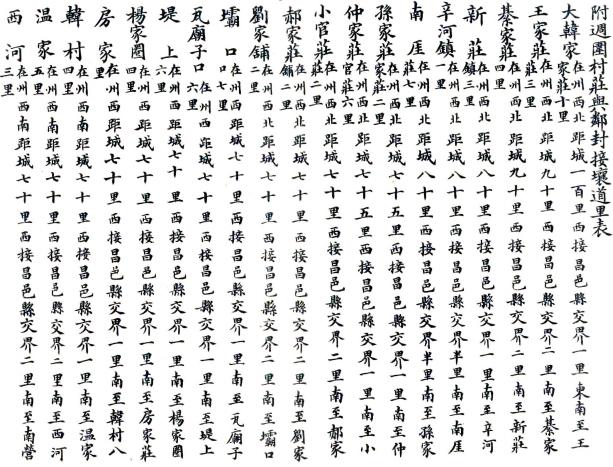 附週圍村莊與鄰封接壤道里表
大韓家 在州西北距城一百里西接昌邑縣交界一里東南至王
家莊十里
王家莊 在州西北距城九十里西接昌邑縣交界二里南至綦家
莊三里
綦家莊 在州西北距城九十里西接昌邑縣交界二里南至新莊
四里
新莊 在州西北距城八十里西接昌邑縣交界一里南至辛河
鎮三里
辛河鎮 在州西北距城八十里西接昌邑縣交界半里南至南厓
一里
南厓 在州西北距城八十里西接昌邑縣交界半里南至孫家
莊七里
孫家莊 在州西北距城七十五里西接昌邑縣交界一里南至仲
家莊二里
仲家莊 在州西北距城七十五里西接昌邑縣交界一里南至小
官莊六里
小官莊 在州西北距城七十里西接昌邑縣交界二里南至郝家
莊二里
郝家莊 在州西北距城七十里西接昌邑縣交界二里南至劉家
鋪二里
劉家鋪 在州西北距城七十里西接昌邑縣交界二里南至壩口
二里
壩口 在州西距城七十里西接昌邑縣交界一里南至瓦廟子
口七里
瓦廟子口 在州西距城七十里西接昌邑縣交界一里南至堤上
六里
堤上 在州西距城七十里西接昌邑縣交界一里南至楊家圈
六里
楊家圈 在州西距城七十里西接昌邑縣交界一里南至房家莊
四里
房家 在州西距城七十里西接昌邑縣交界一里南至韓村八
里
韓村 在州西南距城七十里西接昌邑縣交界一里南至溫家
四里
溫家 在州西南距城七十里西接昌邑縣交界二里南至西河
五里
西河 在州西南距城七十里西接昌邑縣交界二里南至南營
三里